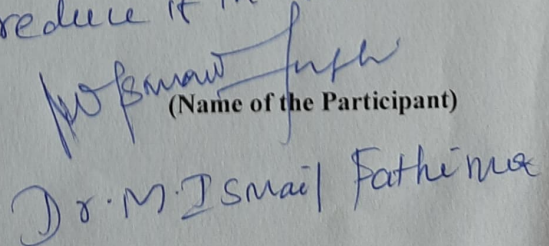 reduce it
(Name of the Participant)
Dr. M. Ismail Fathima